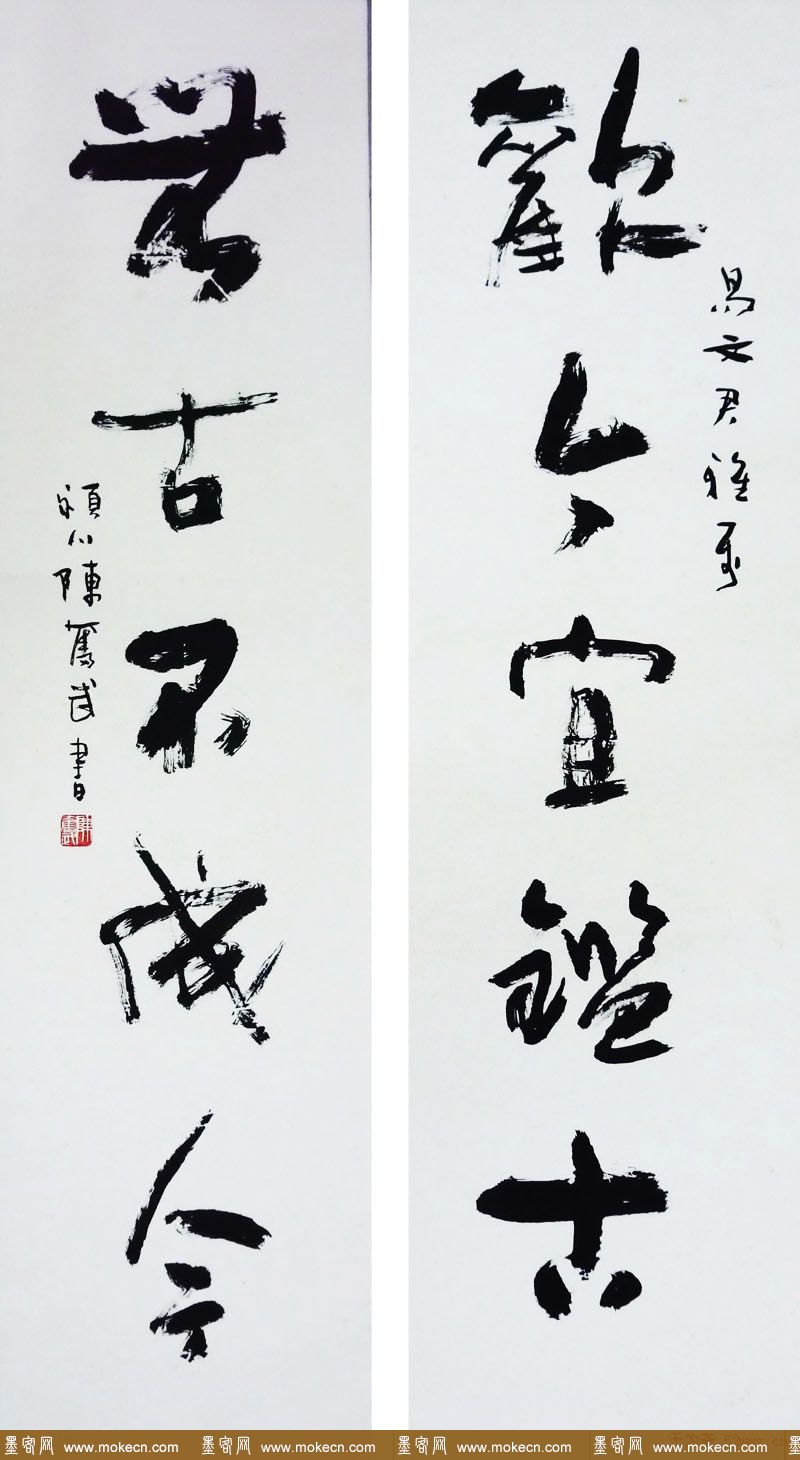 觀今宜鑑古
昌文君雅
無古不成今
潁川陳武書
墨客网 www.mokecn.com 墨客网 www.mokecn.com 墨客网 www.mokecn.com 墨客网 www.mokecn.com